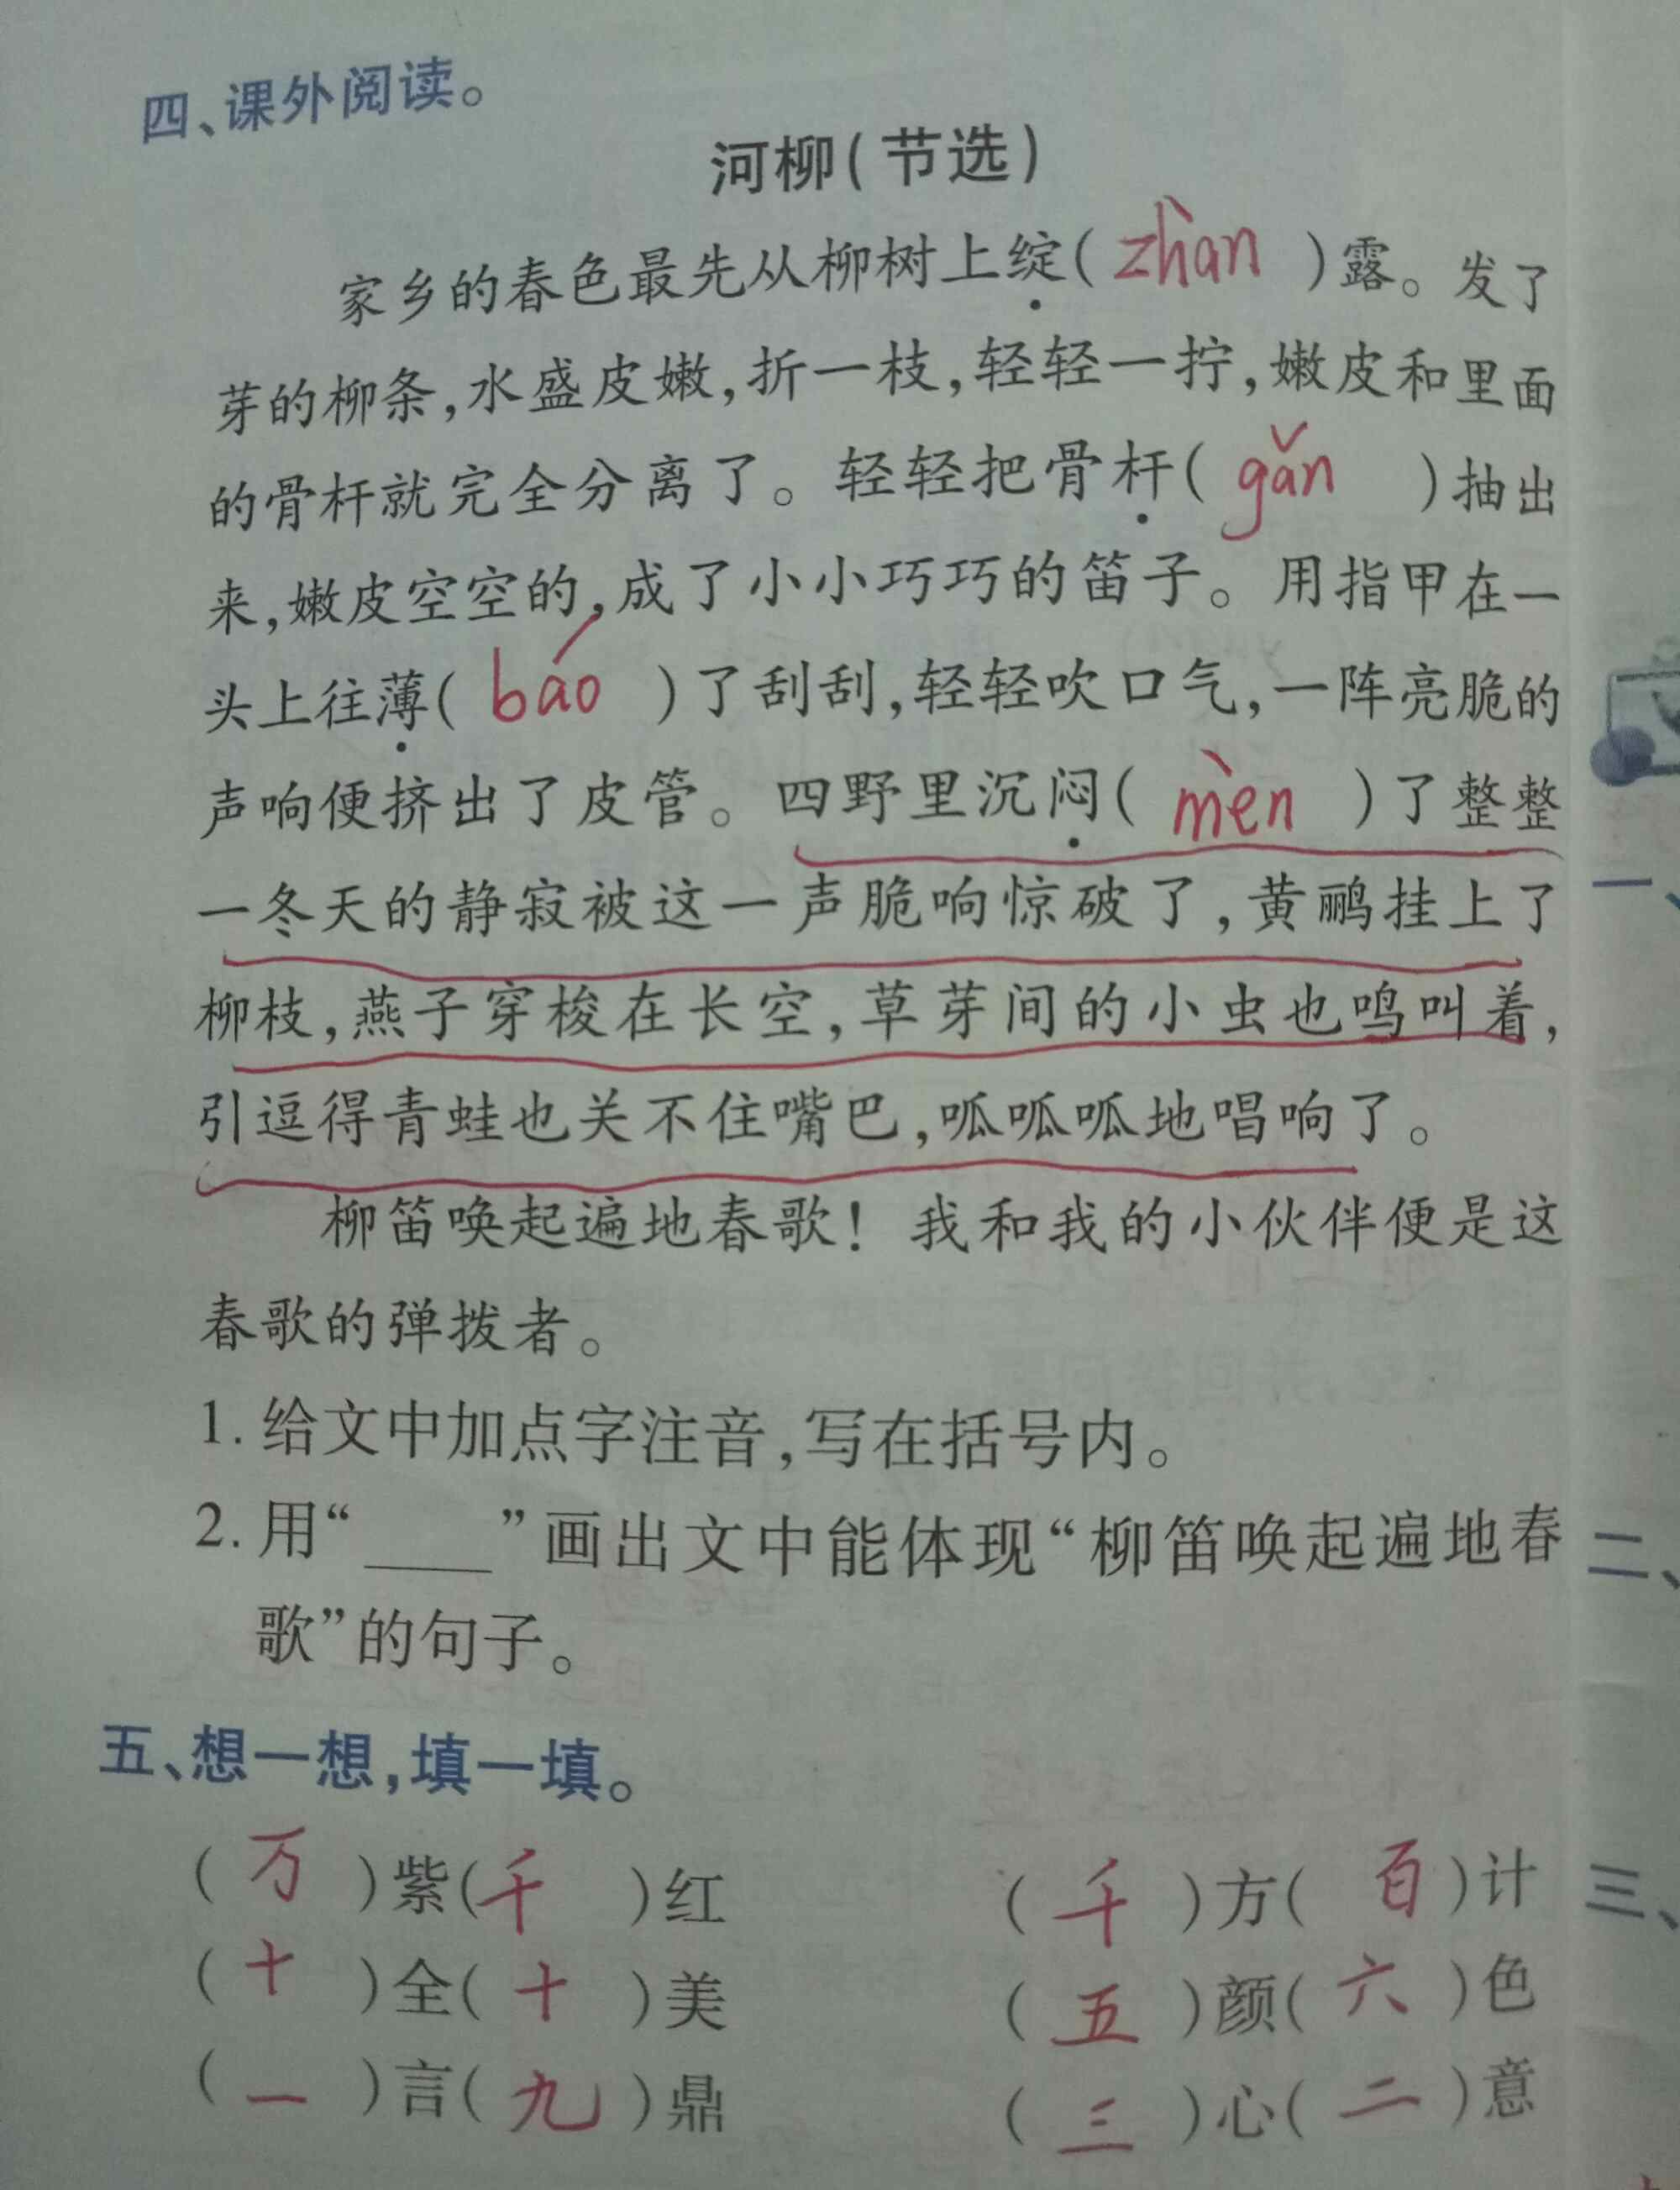 四、课外阅读。
河柳(节选)
家乡的春色最先从柳树上绽(zhàn)露。发了
芽的柳条,水盛皮嫩,折一枝,轻轻一拧,嫩皮和里面
的骨杆就完全分离了。轻轻把骨杆(gǎn)抽出
来,嫩皮空空的,成了小小巧巧的笛子。用指甲在一
头上往薄(báo)了刮刮,轻轻吹口气,一阵亮脆的
声响便挤出了皮管。四野里沉闷(mèn)了整整
一冬天的静寂被这一声脆响惊破了,黄鹂挂上了
柳枝,燕子穿梭在长空,草芽间的小虫也鸣叫着,
引逗得青蛙也关不住嘴巴,呱呱呱地唱响了。
柳笛唤起遍地春歌!我和我的小伙伴便是这
春歌的弹拨者。
1. 给文中加点字注音,写在括号内。
2. 用“____”画出文中能体现“柳笛唤起遍地春
歌”的句子。
五、想一想,填一填。
(万)紫(千)红 (千)方(百)计
(十)全(十)美 (五)颜(六)色
(一)言(九)鼎 (三)心(二)意
一、
二、
三、